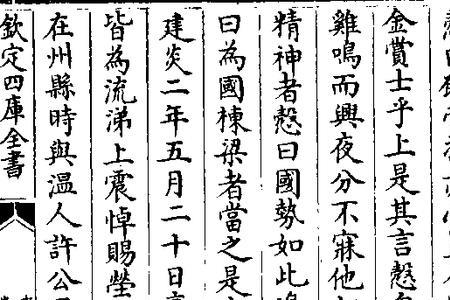 金賞士乎上是其言愨
雞鳴而興夜分不寐他
精神者愨曰國勢如此
曰為國棟梁者當之是
建炎二年五月二十日
皆為流涕上震悼賜塋
在州縣時與温人許公
欽定四庫全書